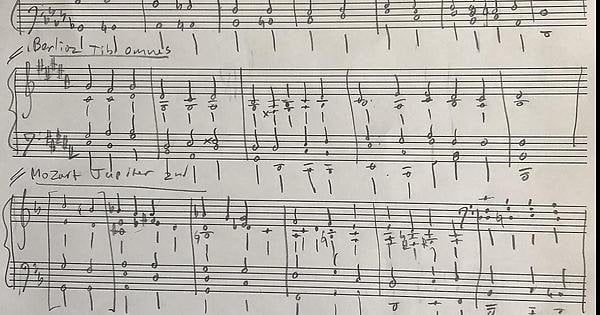 Berlioz Tibi omnes
Mozart Jupiter 2nd